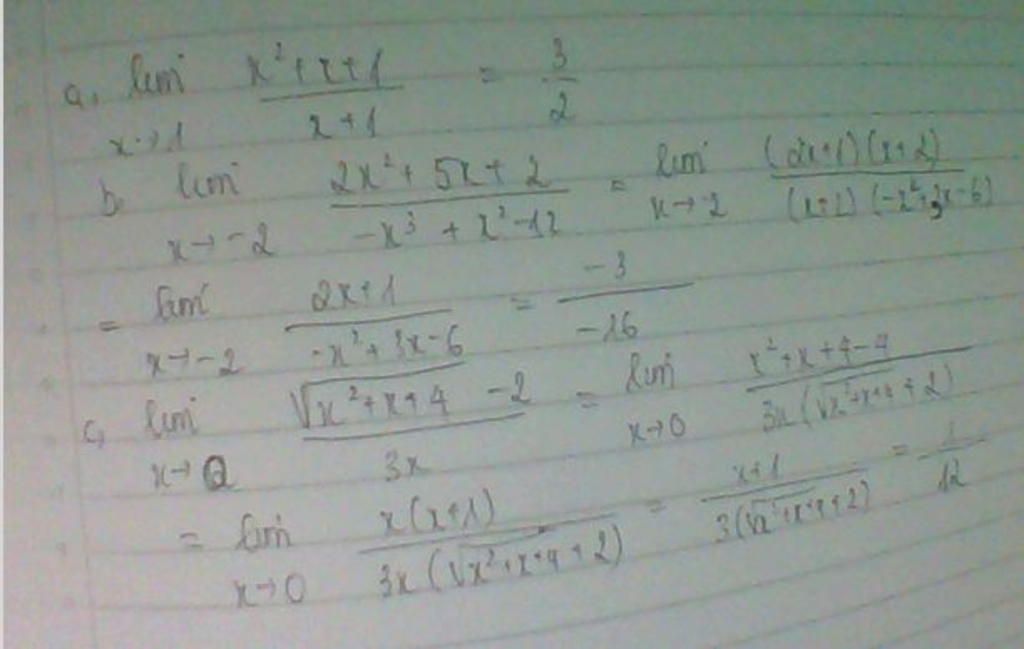 a, lim x→1 (x²+x+1)/(x+1) = 3/2
b, lim x→-2 (2x²+5x+2)/(-x³+x²-12) = lim x→-2 ((2x+1)(x+2))/((x+2)(-x²+3x-6))
= lim x→-2 (2x+1)/(-x²+3x-6) = -3/-16
c, lim x→0 (√(x²+x+4) -2)/(3x) = lim x→0 (x²+x+4-4)/(3x(√(x²+x+4)+2))
= lim x→0 (x(x+1))/(3x(√(x²+x+4)+2)) = (x+1)/(3(√(x²+x+4)+2)) = 1/12